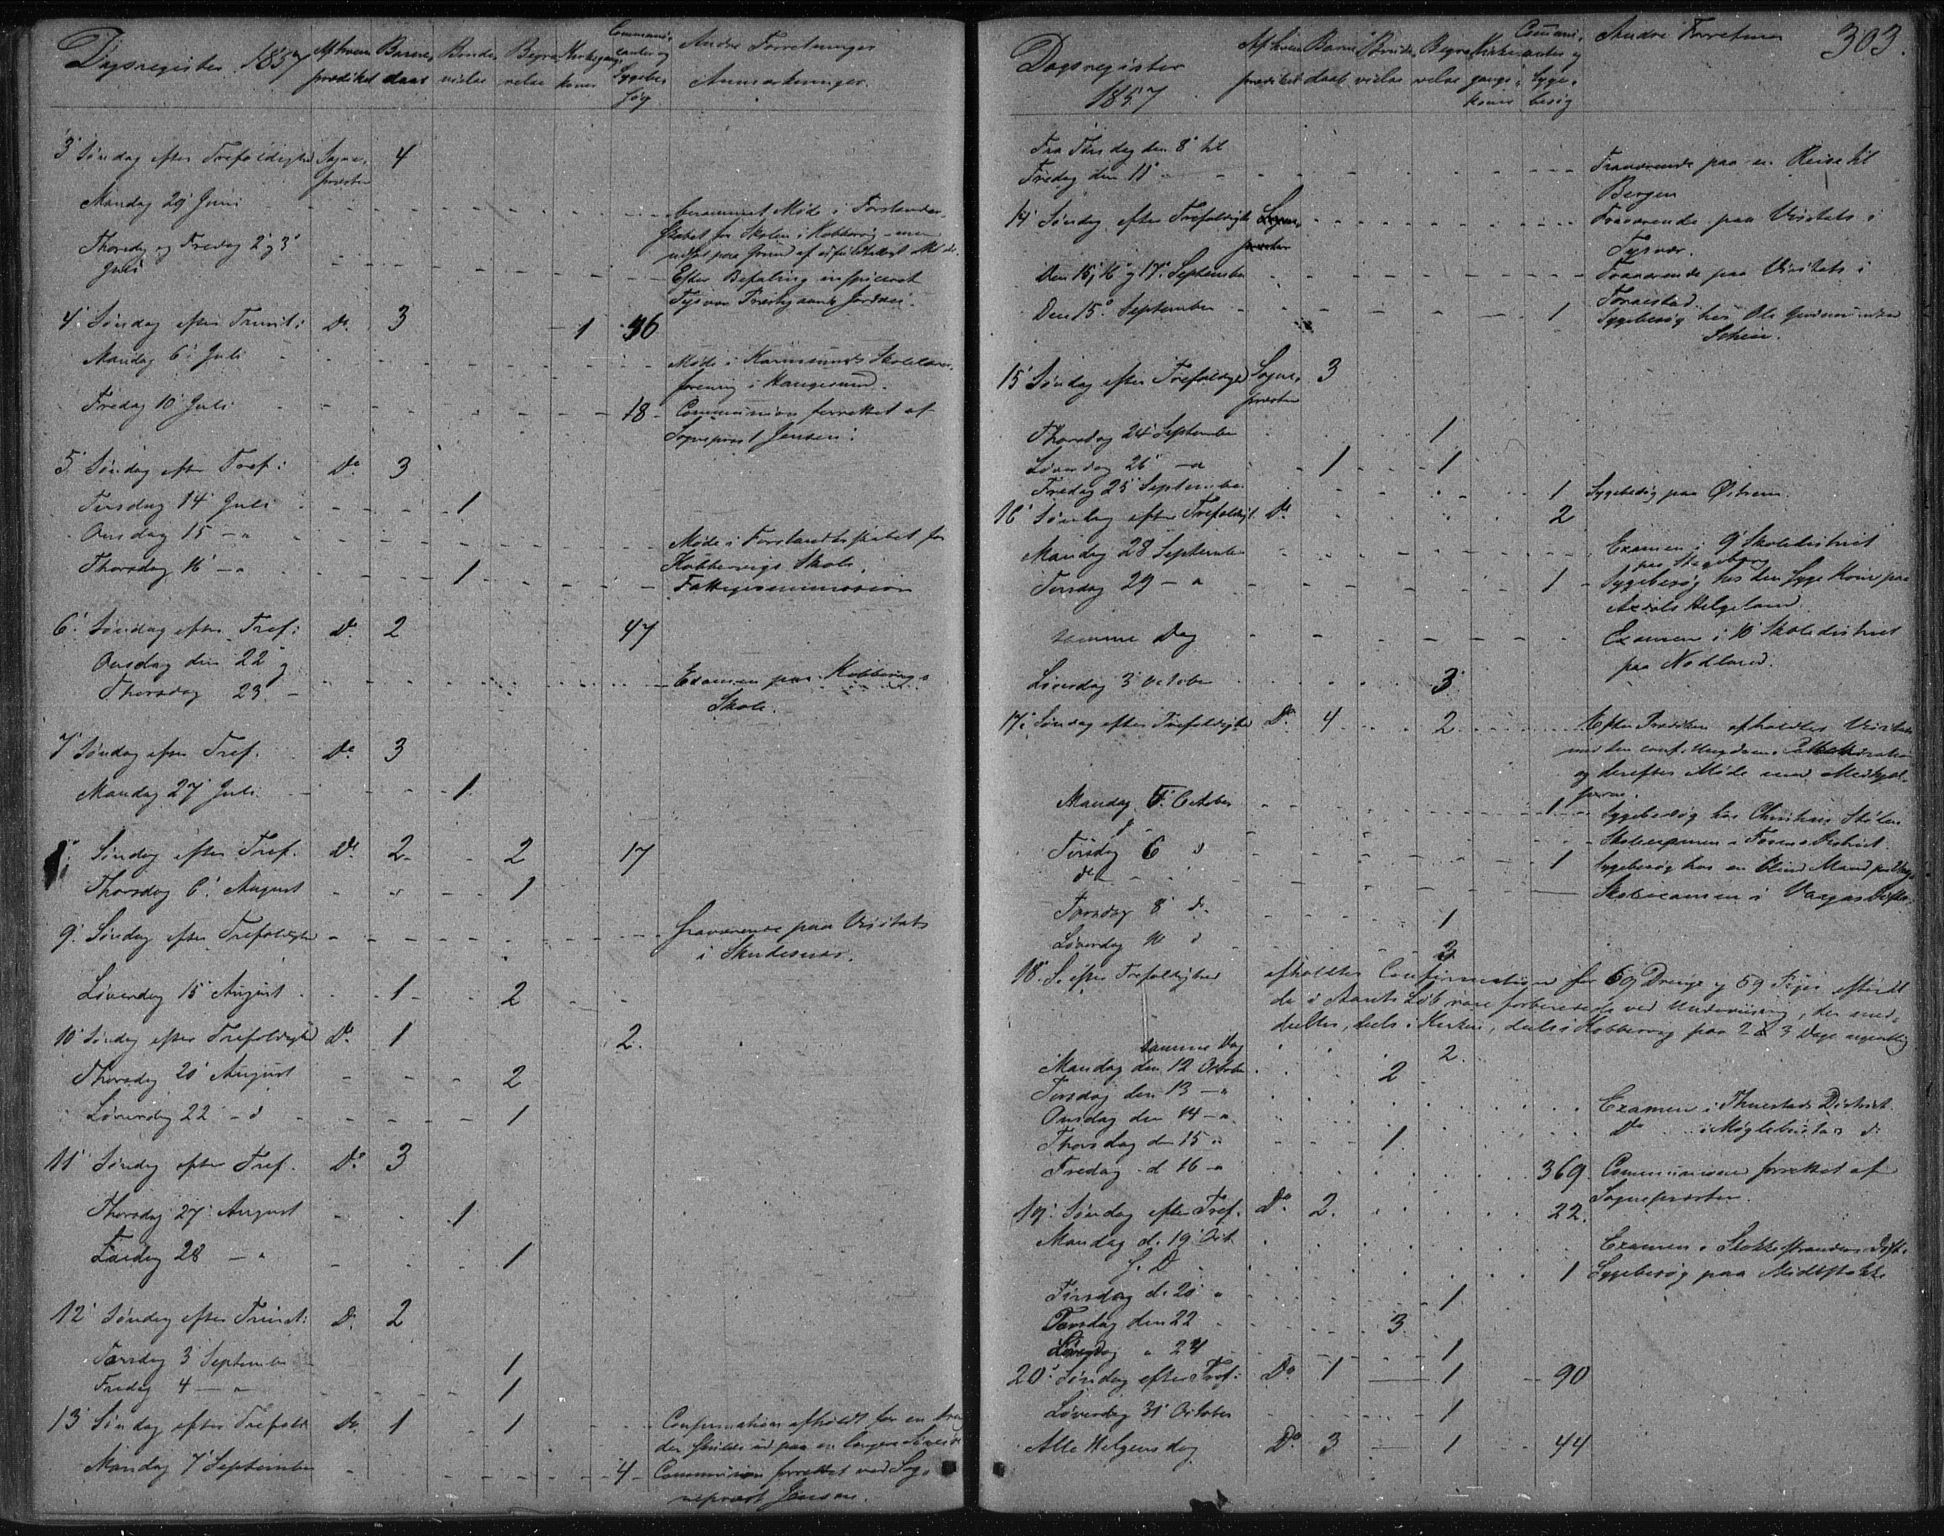 Dagsregister 1857
Af hvem prædiket
Barne daab
Brude vielse
Begra velse
Kirkegangs koner
Communi- canter og Sygebe- søg
Andre Forretninger
Anmærkninger.
3' Søndag efter Trefoldighed Sogne- 4
præsten
Mandag 29' Juni - - - Møde i Forstander-
skabet for Skolen i Kobbervig - men
Thorsdag og Fredag 2' og 3'
Juli - - - Efter Befaling inspiceret
Tysvær Præstegaards Jorder.
4' Søndag efter Trinit: Do 3 1 36
Mandag 6' Juli Møde i Karmsunds Skolelærer-
forening i Haugesund.
Fredag 10' Juli 18 - Communion forrettet af
Sognepræst Jensen.
5' Søndag efter Tref: Do 3
Tirsdag 14' Juli 1
Onsdag 15 - " Møde i Forstanderskabet for
Kobbervigs Skole.
Thorsdag 16' - " 1 Fattigcommission
6' Søndag efter Tref: Do 2 47
Onsdag den 22' og
Thorsdag 23 - Examen paa Kobbervigs
Skole.
7' Søndag efter Tref. Do 3
Mandag 27 Juli 1
8' Søndag efter Tref. Do 2 2 17
Thorsdag 6' August 1
9' Søndag efter Trefoldighed - fraværende paa Visitats
i Skudesnæs.
Løverdag 15' August 1 2
10' Søndag efter Trefoldighed Do 1 2.
Thorsdag 20' August 2
Løverdag 22' - d 1
11' Søndag efter Tref. Do 3
Thorsdag 27' August 1
Fredag 28 - " 1
12' Søndag efter Trinit: Do 2
Torsdag 3' September 1
Fredag 4 - " 1
13' Søndag efter Trefold: Do 1 1 Confirmation afholdt for en Dreng
der skulde ud paa en længere Søreise
Mandag 7' September 4 - Communion forrettet ved Sog-
nepræst Jensen.
303.
Dagsregister
1857
Af hvem prædiket
Barne daab
Brude vielse
Begra velse
Kirke gangs- koner
Communi- canter og Syge- besøg
Andre Forretninger
Fra Tirsdag den 8' til
Fredag den 11' - - - Fraværende paa en Reise til
Bergen
14' Søndag efter Trefoldigh: Sogne- præsten Fraværende paa Visitats i
Tysvær.
Den 15', 16' og 17' September Fraværende paa Visitats i
Torvestad
Den 15' September 1 Sygebesøg hos Ole Gudmundsen
15' Søndag efter Trefoldigh: Sogne- 3
præsten
Thorsdag 24' September 1
Løverdag 26' - " 1 1
Fredag 25' September 1 Sygebesøg paa Østrem.
16' Søndag efter Trefoldigh: Do 2
Mandag 28 September Examen i 9' Skoledistrict
paa Stageberg
Tirsdag 29 - " 1 - Sygebesøg hos den syge Kone paa
Helgeland
samme Dag Examen i 10' Skoledistrict
paa Nodland.
Løverdag 3' October 3
17' Søndag efter Trefoldighed Do 4 2 Efter Prædiken afholdtes Visitats
med den conf. Ungdom
og derefter Møde med Medhjæl-
perne.
Mandag 5' October 1 Sygebesøg hos Christian
Skoleexamen i District
Tirsdag 6 d 1 Sygebesøg hos en blind Mand paa
do - " Skoleexamen i
Torsdag 8' do 1
Løverdag 10 d 3
18' S. efter Trefoldighed afholdtes Confirmation for 69 Drenge og 59 Piger, efterat
de i Aarets Løb vare forberedede ved Underviisning, der med-
deeltes, deels i Kirken, deels i Kobbervig paa 2 à 3 Dage ugentlig
samme Dag 2.
Mandag den 12 October 2
Tirsdag den 13 - " Examen i District
Onsdag den 14 - " Do i d:
Thorsdag d 15 " 1
Fredag d 16 - " 369. Communionen forrettet af
Sognepræsten.
19' Søndag efter Tref. Do 2. 22.
Mandag d. 19' Oct Examen i Stokkestrandens Distr.
s. D 1 Sygebesøg paa Midtstokke
Tirsdag d. 20' " 1
Torsdag den 22 3
Løverdag " 24 1
20' Søndag efter Tref: Do 1 1 90
Løverdag 31' October 1
Alle Helgensdag Do 3 1 44